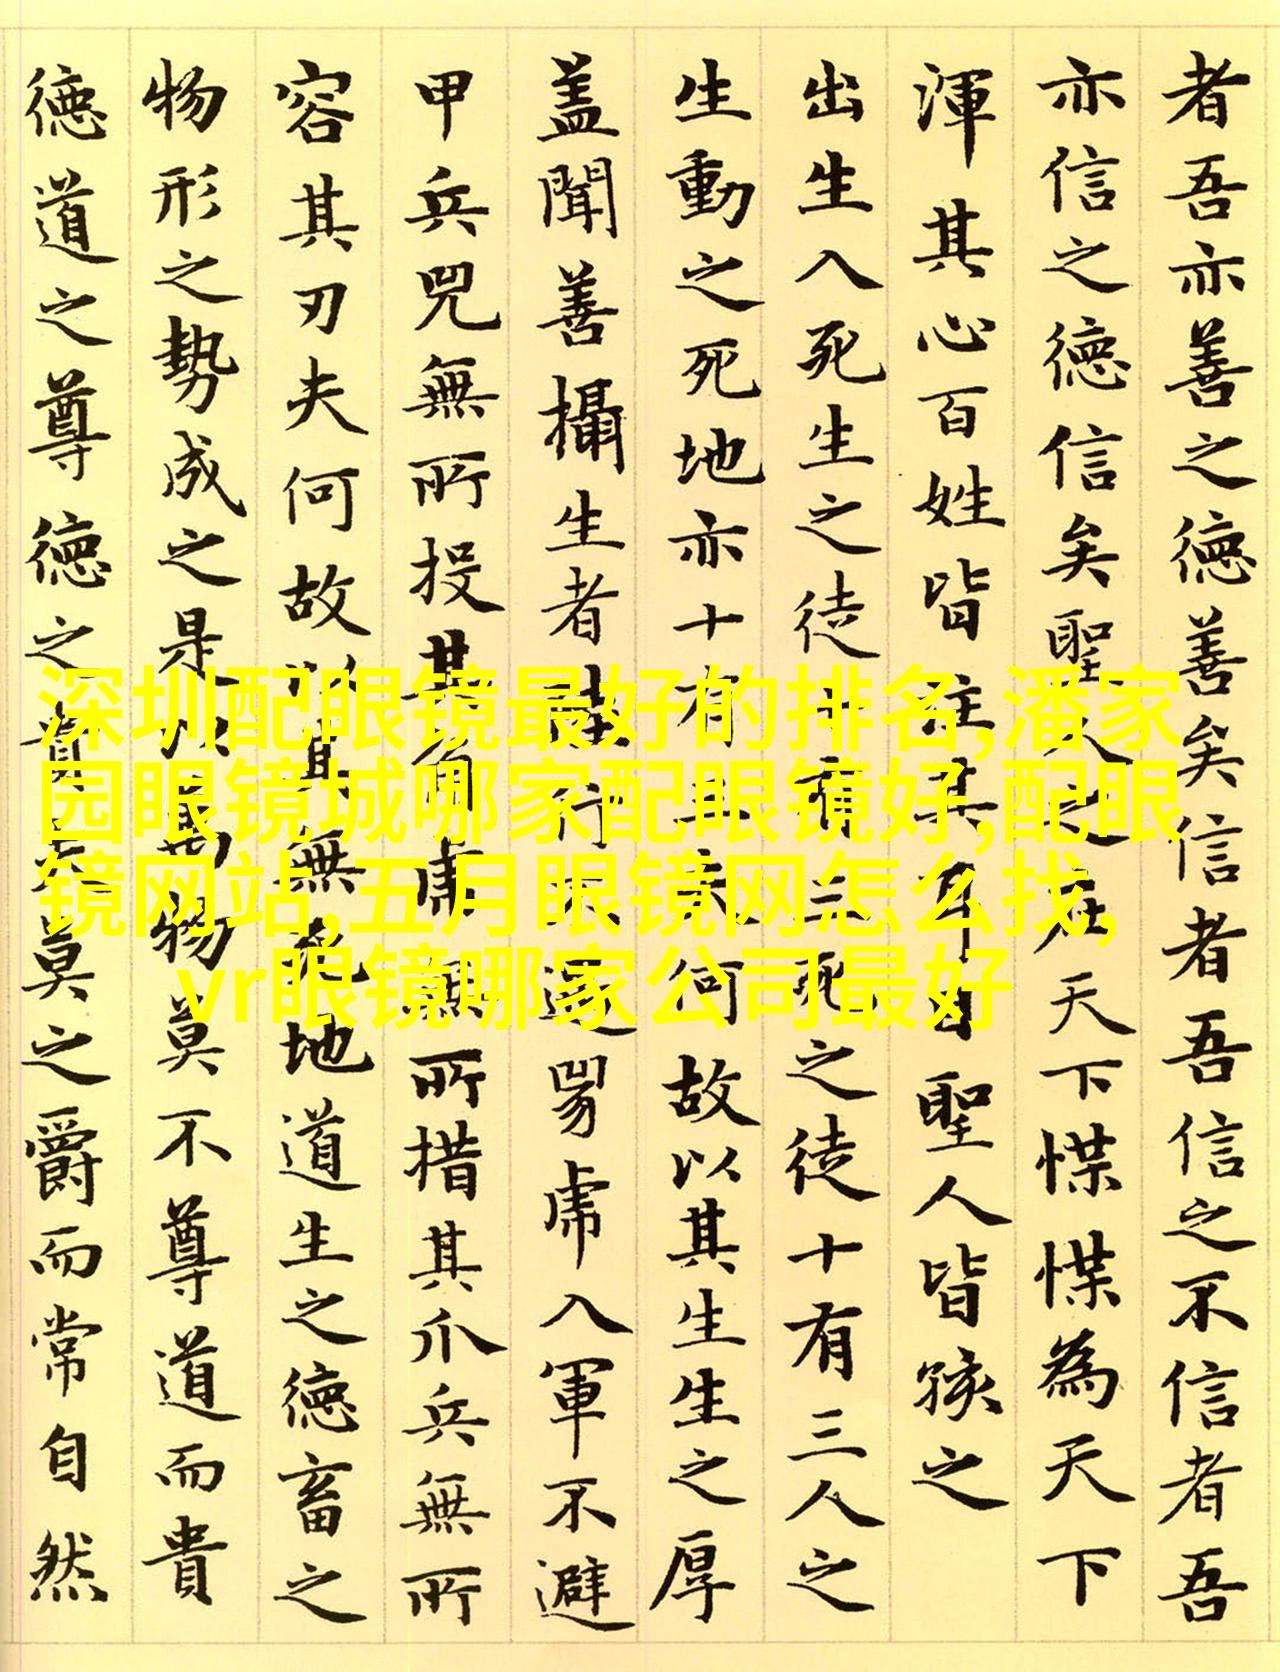 者吾亦善之德善矣信者吾信之不信者吾
亦信之德信矣聖人之在天下惵惵為天下
渾其心百姓皆注其耳目聖人皆孩之
出生入死生之徒十有三死之徒十有三人之
生動之死地亦十有三夫何故以其生生之厚
蓋聞善攝生者陸行不遇兕虎入軍不避
甲兵兕無所投其角虎無所措其爪兵無所
容其刃夫何故以其無死地道生之德畜之
物形之勢成之是以萬物莫不尊道而貴
德道之尊德之貴夫莫之爵而常自然
深圳配眼镜最好的排名,潘家
园眼镜城哪家配眼镜好,配眼
镜网站,五月眼镜网怎么找,
vr眼镜哪家公司最好